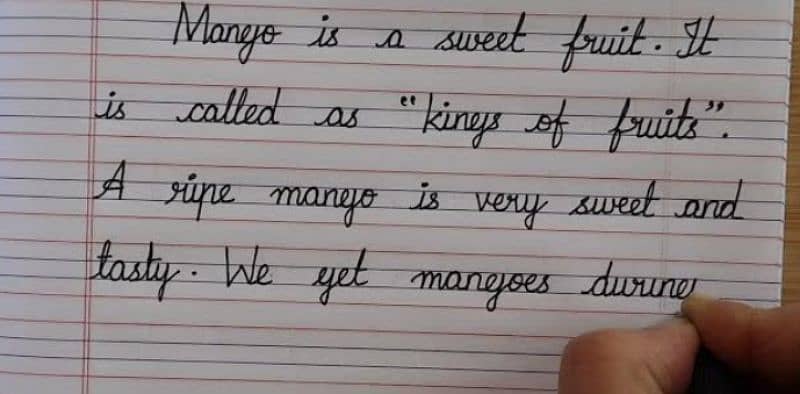 Mango is a sweet fruit. It
is called as "kings of fruits".
A ripe mango is very sweet and
tasty. We get mangoes during